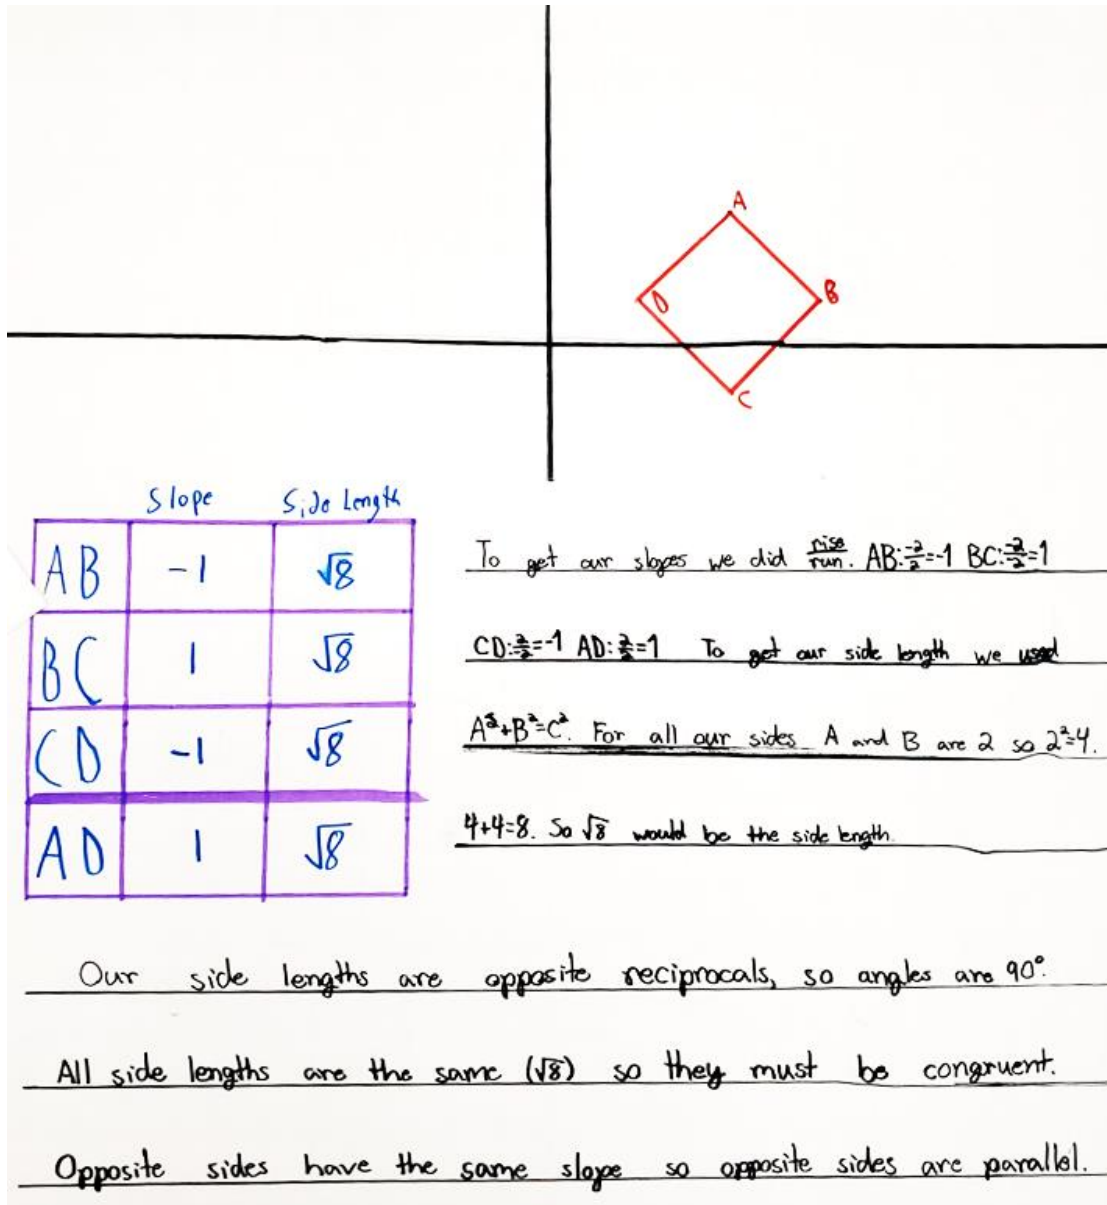 A
B
D
C
Slope Side Length
AB -1 √8
BC 1 √8
CD -1 √8
AD 1 √8
To get our slopes we did rise/run. AB: -2/2=-1 BC: -2/-2=1
CD: 2/-2=-1 AD: 2/2=1 To get our side length we used
A²+B²=C². For all our sides A and B are 2 so 2²=4.
4+4=8. So √8 would be the side length.
Our side lengths are opposite reciprocals, so angles are 90°.
All side lengths are the same (√8) so they must be congruent.
Opposite sides have the same slope so opposite sides are parallel.